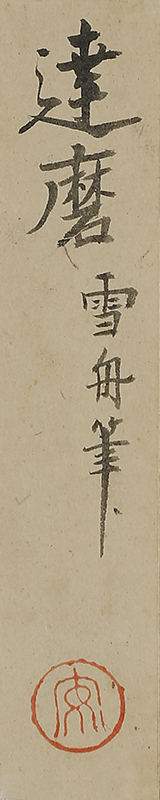 達磨 雪舟筆
安